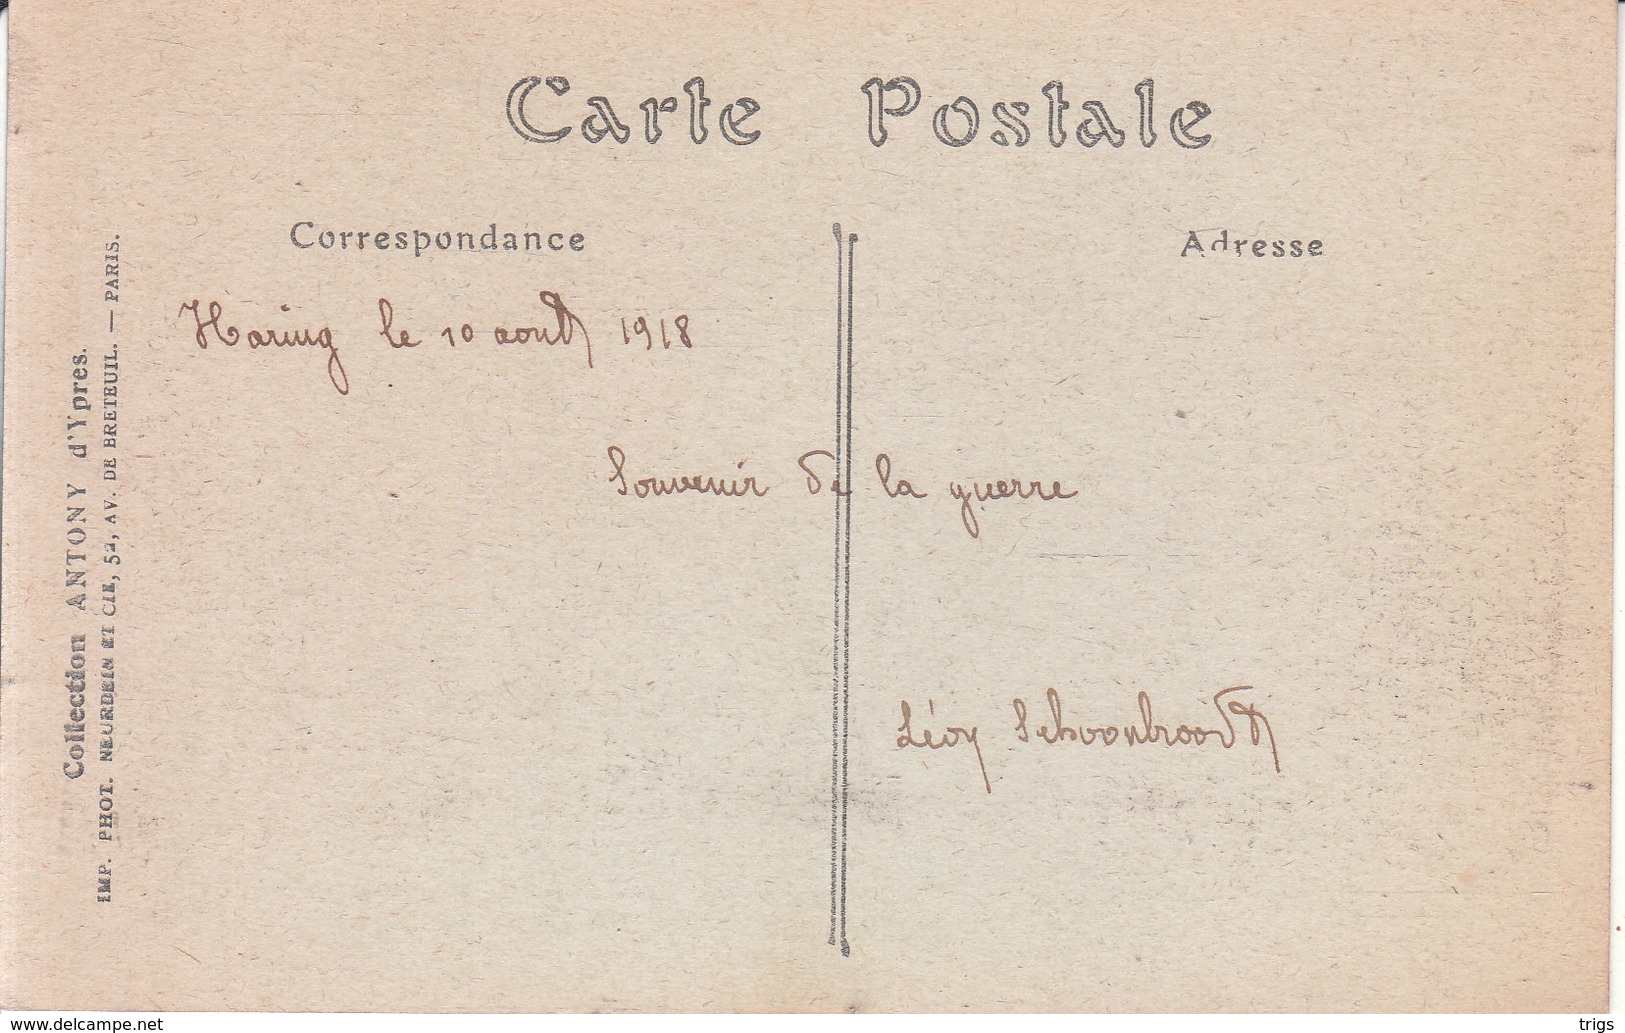 Carte Postale
Correspondance
Adresse
Haring le 10 août 1918
Souvenir de la guerre
Léon Schoonbroodt
Collection ANTONY d'Ypres.
IMP. PHOT. NEURDEIN ET CIE, 52, AV. DE BRETEUIL. — PARIS.
www.delcampe.net
trigs